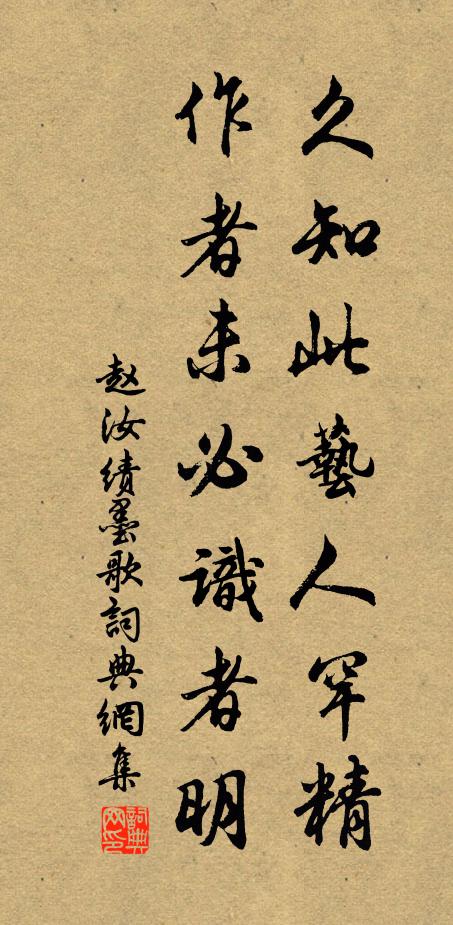 久知此藝人罕精
作者未必識者明
赵汝绩墨歌詞典網集
詞典網印